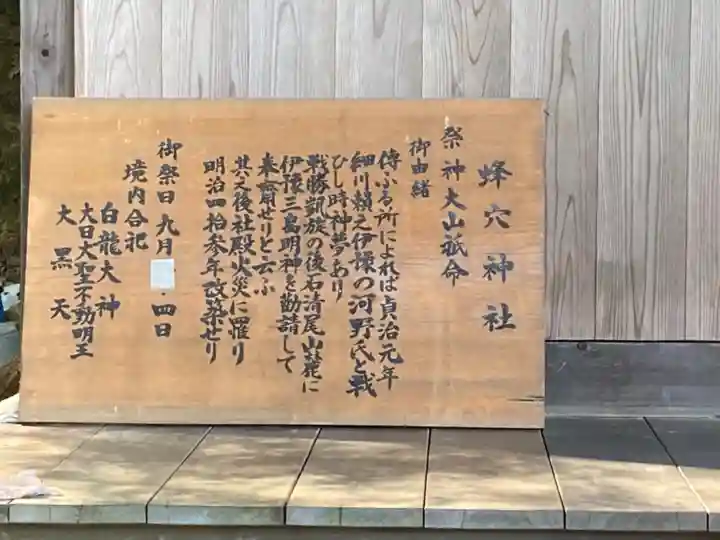 蜂穴神社
祭神大山祇命
御由緒
傳ふる所によれは貞治元年
細川頼之伊豫の河野氏と戦
ひし時神夢あり
戦勝凱旋の後石清尾山麓に
伊豫三島明神を勧請して
奉齋せりと云ふ
其之後社殿火災に罹り
明治四拾参年改築せり
御祭日九月 ・四日
境内合祀
白龍大神
大日大聖不動明王
大黒天